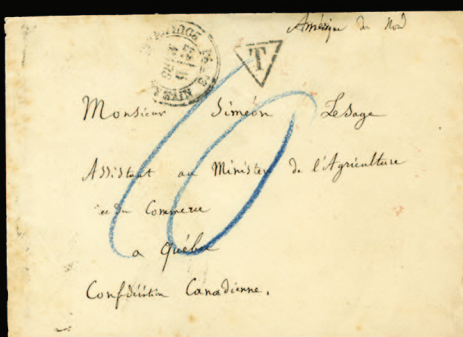 Amérique du Nord
T
Monsieur Siméon Lesage
Assistant au Ministère de l'Agriculture
et du Commerce
à Québec
Confédération Canadienne.
10